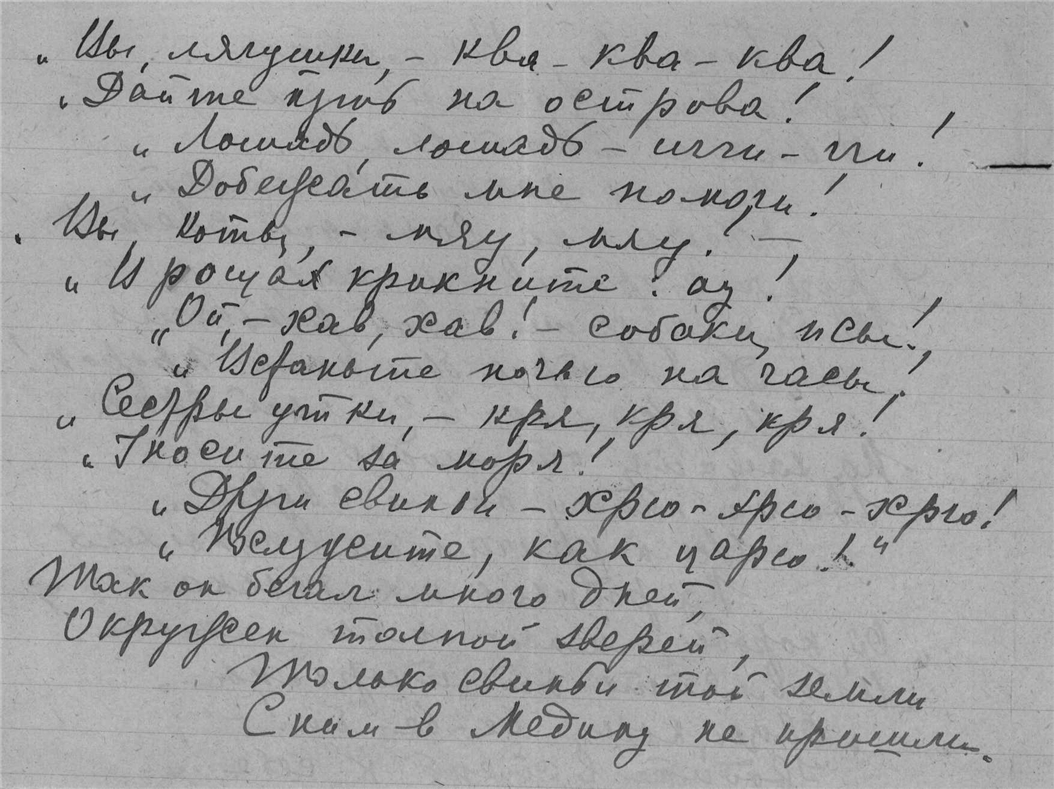 „Вы, лягушки, – ква – ква – ква!
„Дайте путь на острова!
„Лошадь, лошадь – игги – гги!
„Добежать мне помоги!
„Вы, коты, – мяу, мяу! –
„И рощая крикните: ау!
„Ой, – хав, хав! – собаки, псы!,
„Встаньте ночью на часы!
„Сестры утки, – кря, кря, кря!
„Уносите за моря!
„Други свиньи – хрю – хрю – хрю!
„Послужите, как царю!"
Так он бегал много дней,
Окружен толпой зверей,
Только свиньи той земли
С ним в Медину не пришли.